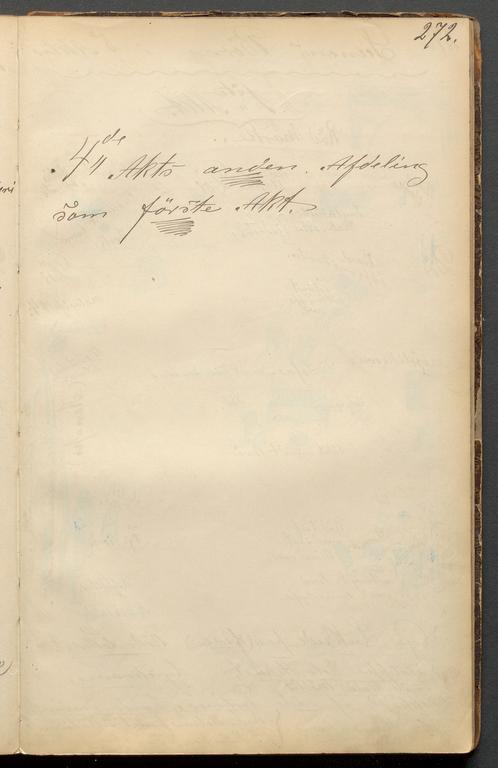 272.
4de Akts anden Afdeling
som förste Akt.